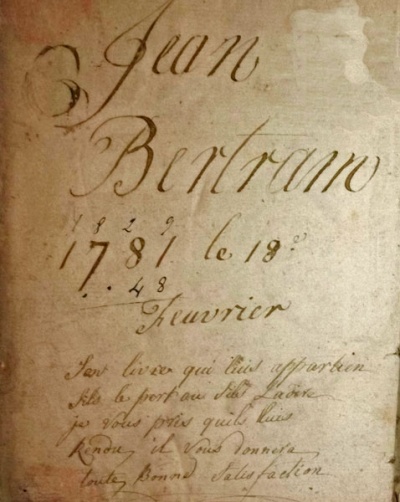 Jean
Bertram
1829
1781 le 18e
. . 48
Feuvrier
Sen livre qui luis appartien
sils le port au sils Lavire
je vous pris quils luis
Rendu, il vous donnera
toute Bonne Satisfaction